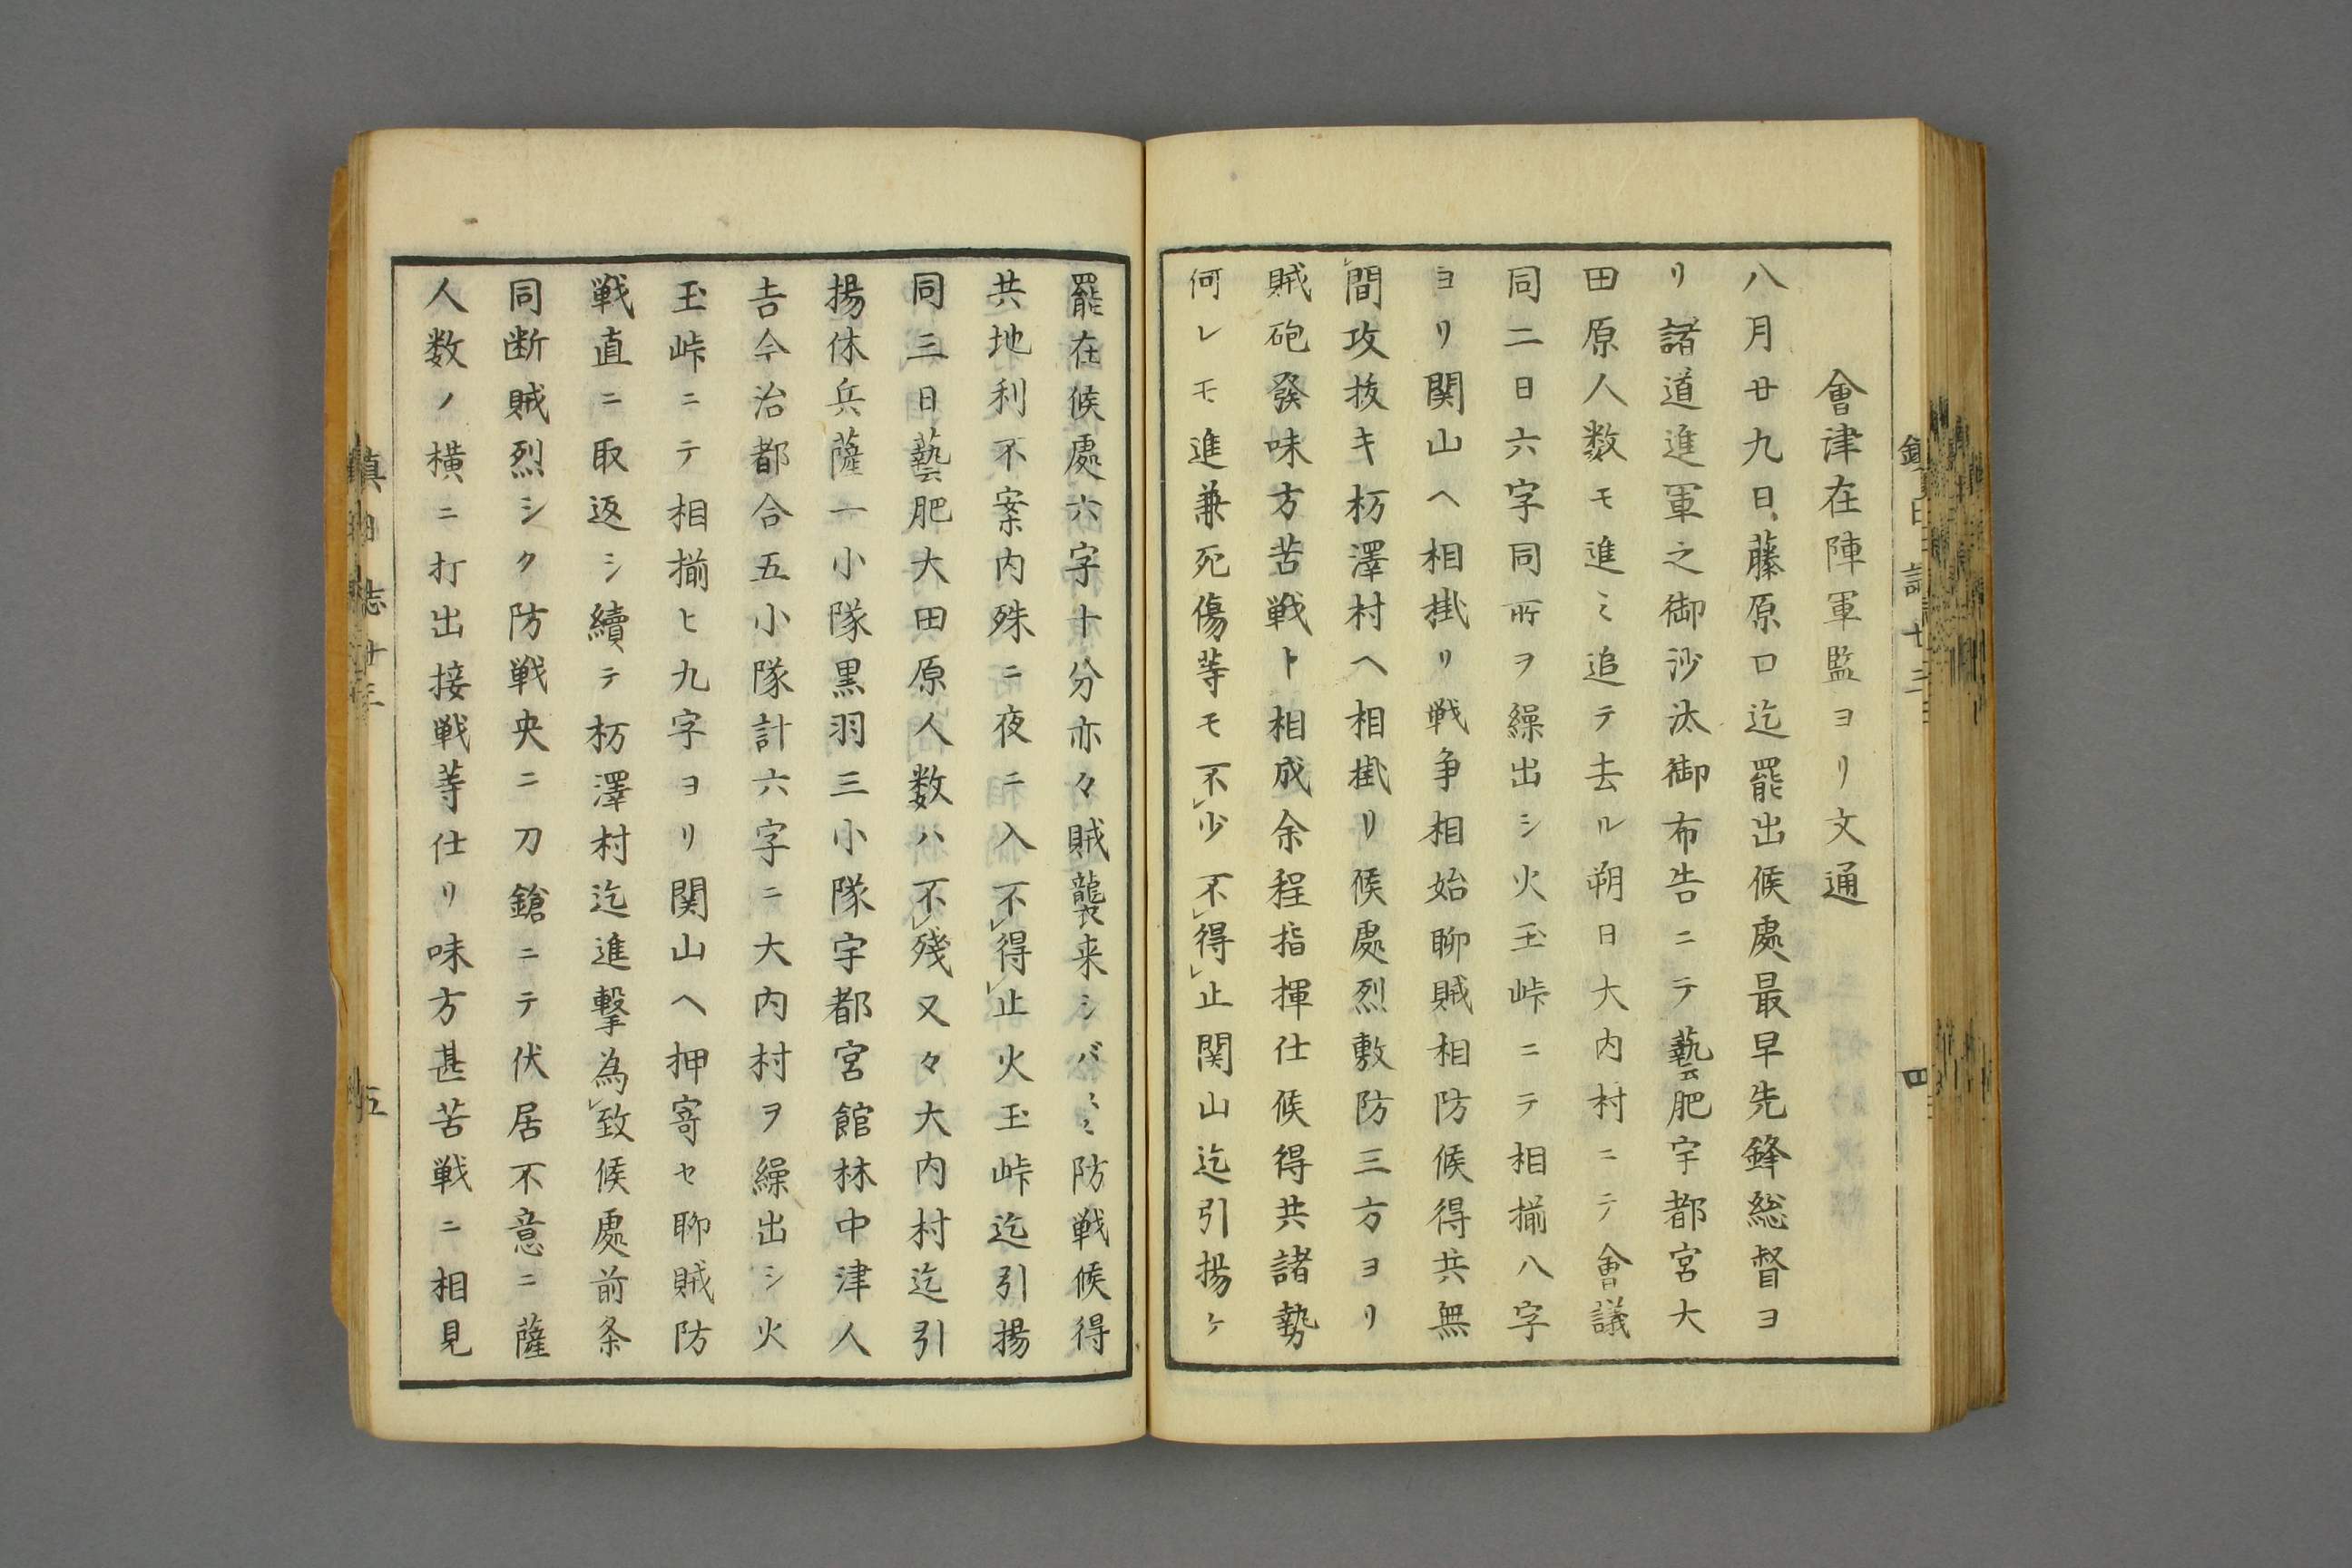 會津在陣軍監ヨリ文通
八月廿九日藤原口迄罷出候處最早先鋒総督ヨ
リ諸道進軍之御沙汰御布告ニテ藝肥宇都宮大
田原人数モ進ミ追テ去ル朔日大内村ニテ會議
同二日六字同所ヲ繰出シ火玉峠ニテ相揃八字
ヨリ関山ヘ相掛リ戦争相始聊賊相防候得共無
間攻抜キ栃澤村ヘ相掛リ候處烈敷防三方ヨリ
賊砲發味方苦戦ト相成余程指揮仕候得共諸勢
何レモ進兼死傷等モ不少不得止関山迄引揚ケ
四
罷在候處六字十分亦々賊襲来シバヾミ防戦候得
共地利不案内殊ニ夜ニ入不得止火玉峠迄引揚
同三日藝肥大田原人数ハ不殘又々大内村迄引
揚休兵薩一小隊黒羽三小隊宇都宮館林中津人
吉今治都合五小隊計六字ニ大内村ヲ繰出シ火
玉峠ニテ相揃ヒ九字ヨリ関山ヘ押寄セ聊賊防
戦直ニ取返シ續テ栃澤村迄進撃為致候處前条
同断賊烈シク防戦央ニ刀鎗ニテ伏居不意ニ薩
人数ノ横ニ打出接戦等仕リ味方甚苦戦ニ相見
五